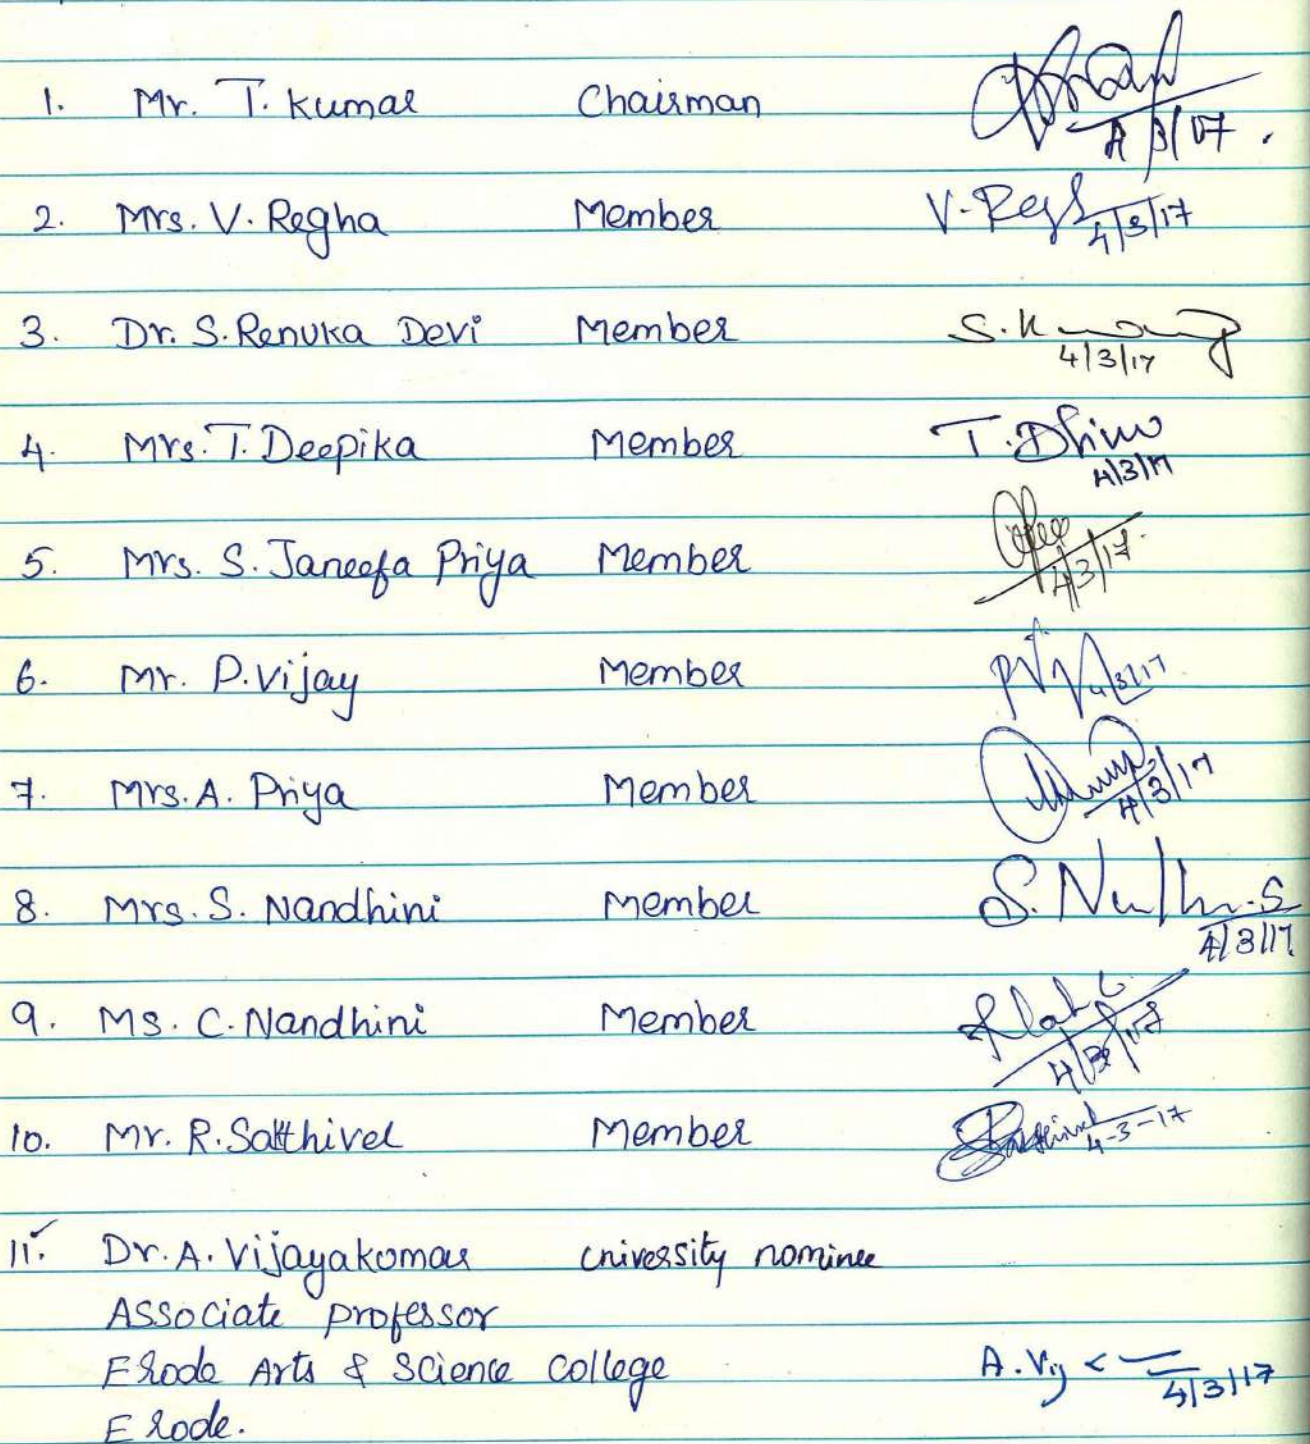 1. Mr. T. Kumar Chairman
2. Mrs. V. Regha Member V. Reg 4/3/17
3. Dr. S. Renuka Devi Member S. 4/3/17
4. Mrs. T. Deepika Member T. 4/3/17
5. Mrs. S. Janeefa Priya Member 4/3/17
6. Mr. P. Vijay Member 4/3/17
7. Mrs. A. Priya Member 4/3/17
8. Mrs. S. Nandhini Member S. 4/3/17
9. Ms. C. Nandhini Member 4/3/17
10. Mr. R. Satthivel Member 4-3-17
11. Dr. A. Vijayakumar University nominee
Associate professor
Erode Arts & Science College A. Vij 4/3/17
Erode.